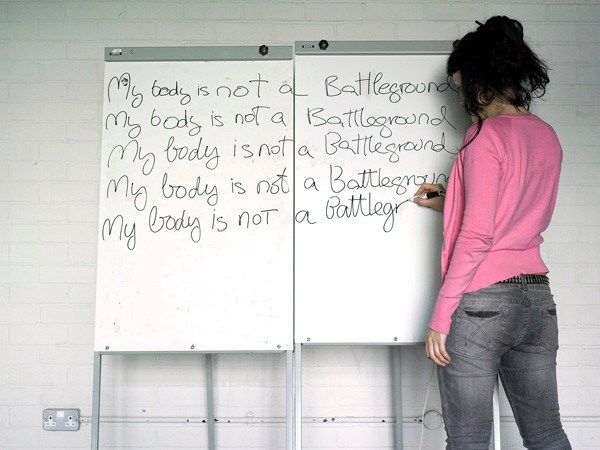 My body is not a Battleground
My body is not a Battleground
My body is not a Battleground
My body is not a Battleground
My body is not a Battlegr